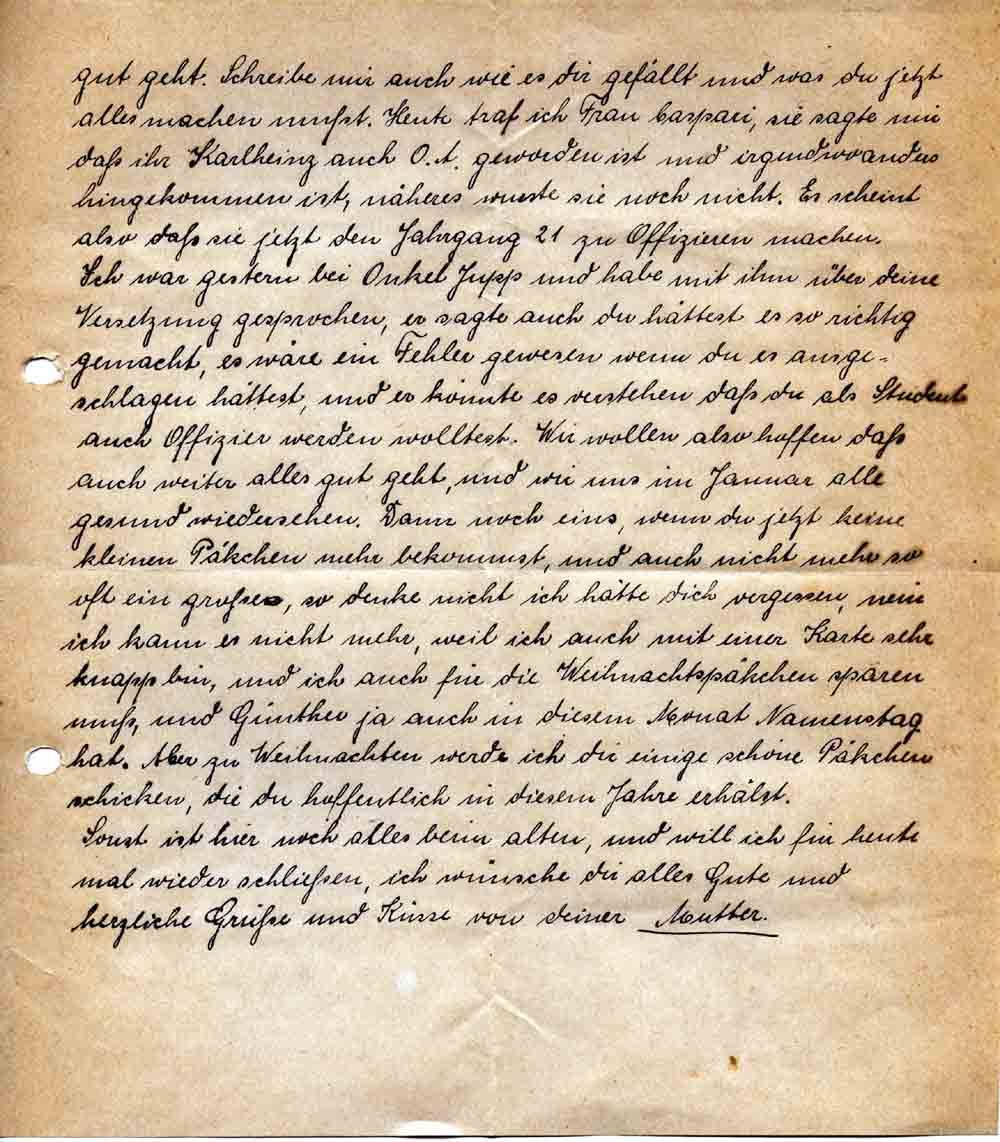 gut geht. Schreibe mir auch wie es dir gefällt und was du jetzt
alles machen mußt. Heute traf ich Frau Caspari, sie sagte mir
daß ihr Karlheinz auch O.A. geworden ist und irgendwo anders
hingekommen ist, näheres wuste sie noch nicht. Es scheint
also daß sie jetzt den Jahrgang 21 zu Offizieren machen.
Ich war gestern bei Onkel Jupp und habe mit ihm über deine
Versetzung gesprochen, er sagte auch du hättest es so richtig
gemacht, es wäre ein Fehler gewesen wenn du es ausge-
schlagen hättest, und er könnte es verstehen daß du als Student
auch Offizier werden wolltest. Wir wollen also hoffen daß
auch weiter alles gut geht, und wir uns im Januar alle
gesund wiedersehen. Dann noch eins, wenn du jetzt keine
kleinen Päkchen mehr bekommst, und auch nicht mehr so
oft ein großes, so denke nicht ich hätte dich vergessen, nein
ich kann es nicht mehr, weil ich auch mit einer Karte sehr
knapp bin, und ich auch für die Weihnachtspäkchen sparen
muß, und Günther ja auch in diesem Monat Namenstag
hat. Aber zu Weihnachten werde ich dir einige schöne Päkchen
schicken, die du hoffentlich in diesem Jahre erhälst.
Sonst ist hier noch alles beim alten, und will ich für heute
mal wieder schließen, ich wünsche dir alles Gute und
herzliche Grüße und Küsse von deiner Mutter.